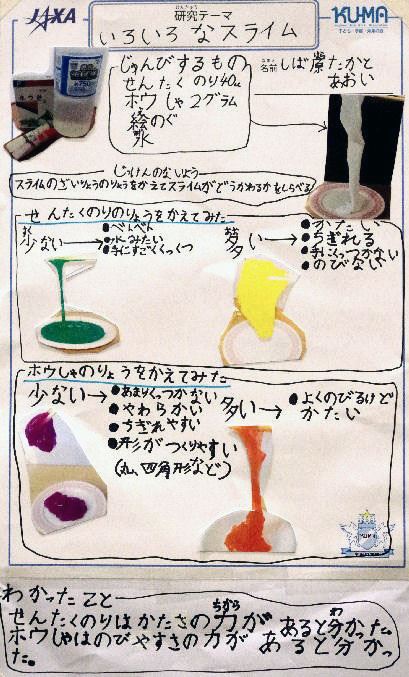 JAXA
研究テーマ
KUMA
いろいろなスライム
じゅんびするもの
せんたくのり40
ホウしゃ2グラム
絵のぐ
水
名前 しば たかと
あおい
じっけんのないよう
スライムのざいりょうのりょうをかえてスライムがどうかわるかをしらべる
せんたくのりのりょうをかえてみた
少ない→
●べたべた
●水みたい
●手にすごくくっつく
多い→
●かたい
●ちぎれる
●手にくっつかない
●のびない
ホウしゃのりょうをかえてみた
少ない→
●あまりくっつかない
●やわらかい
●ちぎれやすい
●形がつくりやすい
(丸、四角形など)
多い→
●よくのびるけど
かたい
KUMA
わかったこと
せんたくのりはかたさの力があると分かった。
ホウしゃはのびやすさの力があると分かっ
た。